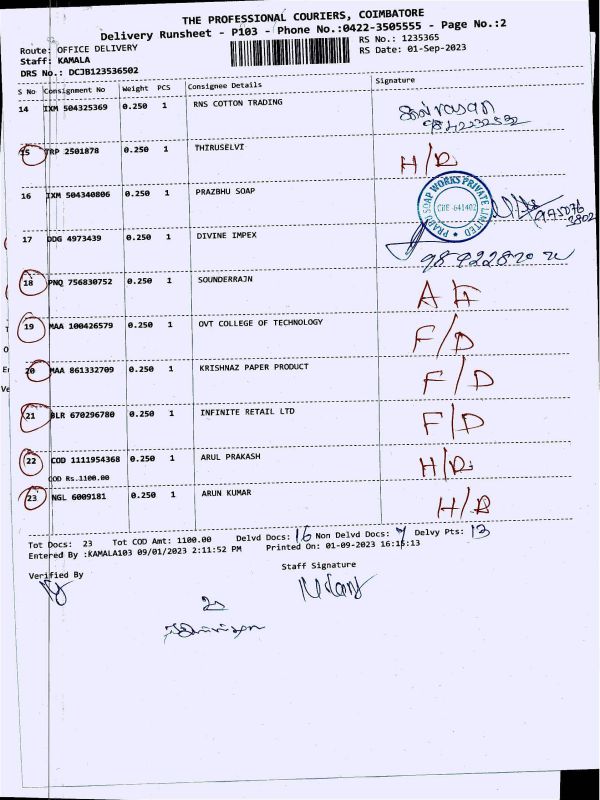 THE PROFESSIONAL COURIERS, COIMBATORE
Delivery Runsheet - P103 - Phone No.:0422-3505555 - Page No.:2
Route: OFFICE DELIVERY
RS No.: 1235365
Staff: KAMALA
RS Date: 01-Sep-2023
DRS No.: DCJB123536502
S No Consignment No Weight PCS Consignee Details Signature
14 IXM 504325369 0.250 1 RNS COTTON TRADING
15 TRP 2501878 0.250 1 THIRUSELVI H/D
16 IXM 504340806 0.250 1 PRAZBHU SOAP
SOAP WORKS PRIVATE LIMITED
CBE-641402
17 DDG 4973439 0.250 1 DIVINE IMPEX
18 PNQ 756830752 0.250 1 SOUNDERRAJN
19 MAA 100426579 0.250 1 OVT COLLEGE OF TECHNOLOGY F/D
20 MAA 861332709 0.250 1 KRISHNAZ PAPER PRODUCT F/D
21 BLR 670296780 0.250 1 INFINITE RETAIL LTD F/D
22 COD 1111954368 0.250 1 ARUL PRAKASH H/D
COD Rs.1100.00
23 NGL 6009181 0.250 1 ARUN KUMAR H/D
Tot Docs: 23 Tot COD Amt: 1100.00 Delvd Docs: 16 Non Delvd Docs: 7 Delvy Pts: 13
Entered By :KAMALA103 09/01/2023 2:11:52 PM Printed On: 01-09-2023 16:16:13
Verified By
Staff Signature